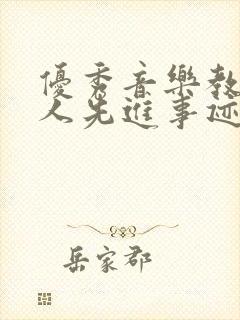 優秀音樂教
人先進事迹
岳家郡